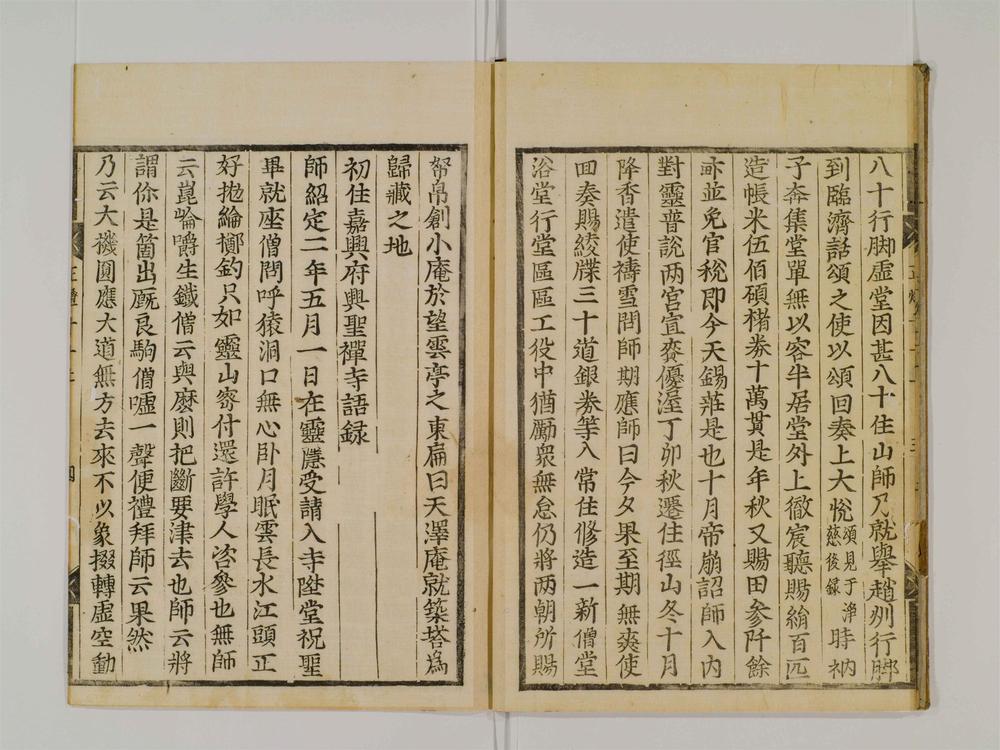 八十行脚虛堂因甚八十住山師乃就舉趙州行脚
到臨濟話頌之使以頌回奏上大悅頌見于淨慈後錄時衲
子奔集堂單無以容半居堂外上徹宸聽賜絹百匹
造帳米伍佰碩楮券十萬貫是年秋又賜田參阡餘
畝並免官稅即今天錫莊是也十月帝崩詔師入內
對靈普說两宮宣賚優渥丁卯秋遷住徑山冬十月
降香遣使禱雪問師期應師曰今夕果至期無爽使
回奏賜綾牒三十道銀券等入常住修造一新僧堂
浴堂行堂區區工役中猶勵衆無怠仍將两朝所賜
帑帛創小庵於望雲亭之東扁曰天澤庵就築塔為
歸藏之地
初住嘉興府興聖禪寺語録
師紹定二年五月一日在靈隱受請入寺陞堂祝聖
畢就座僧問呼猿洞口無心卧月眠雲長水江頭正
好抛綸擲釣只如靈山密付還許學人咨參也無師
云崑崘嚼生鐵僧云與麽則把斷要津去也師云將
謂你是箇出厩良駒僧嘘一聲便禮拜師云果然
乃云大機圓應大道無方去來不以象掇轉虛空動